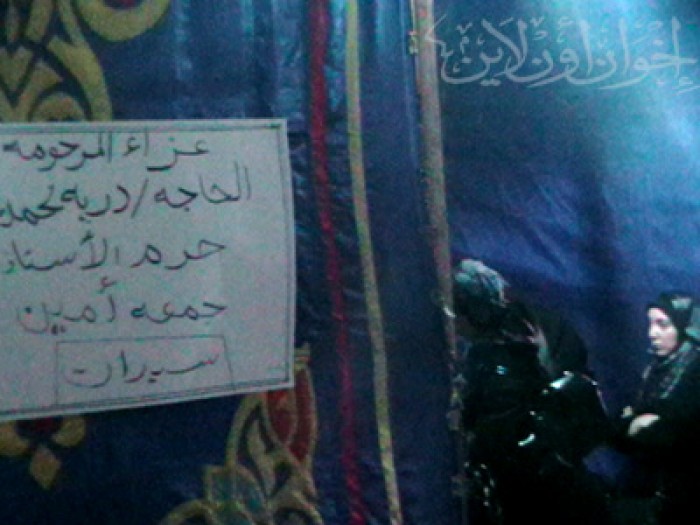 إخوان أون لاين
عزاء المرحومه
الحاجه/دريه محمد
حرم الأستاذ
جمعه أمين
سيدات